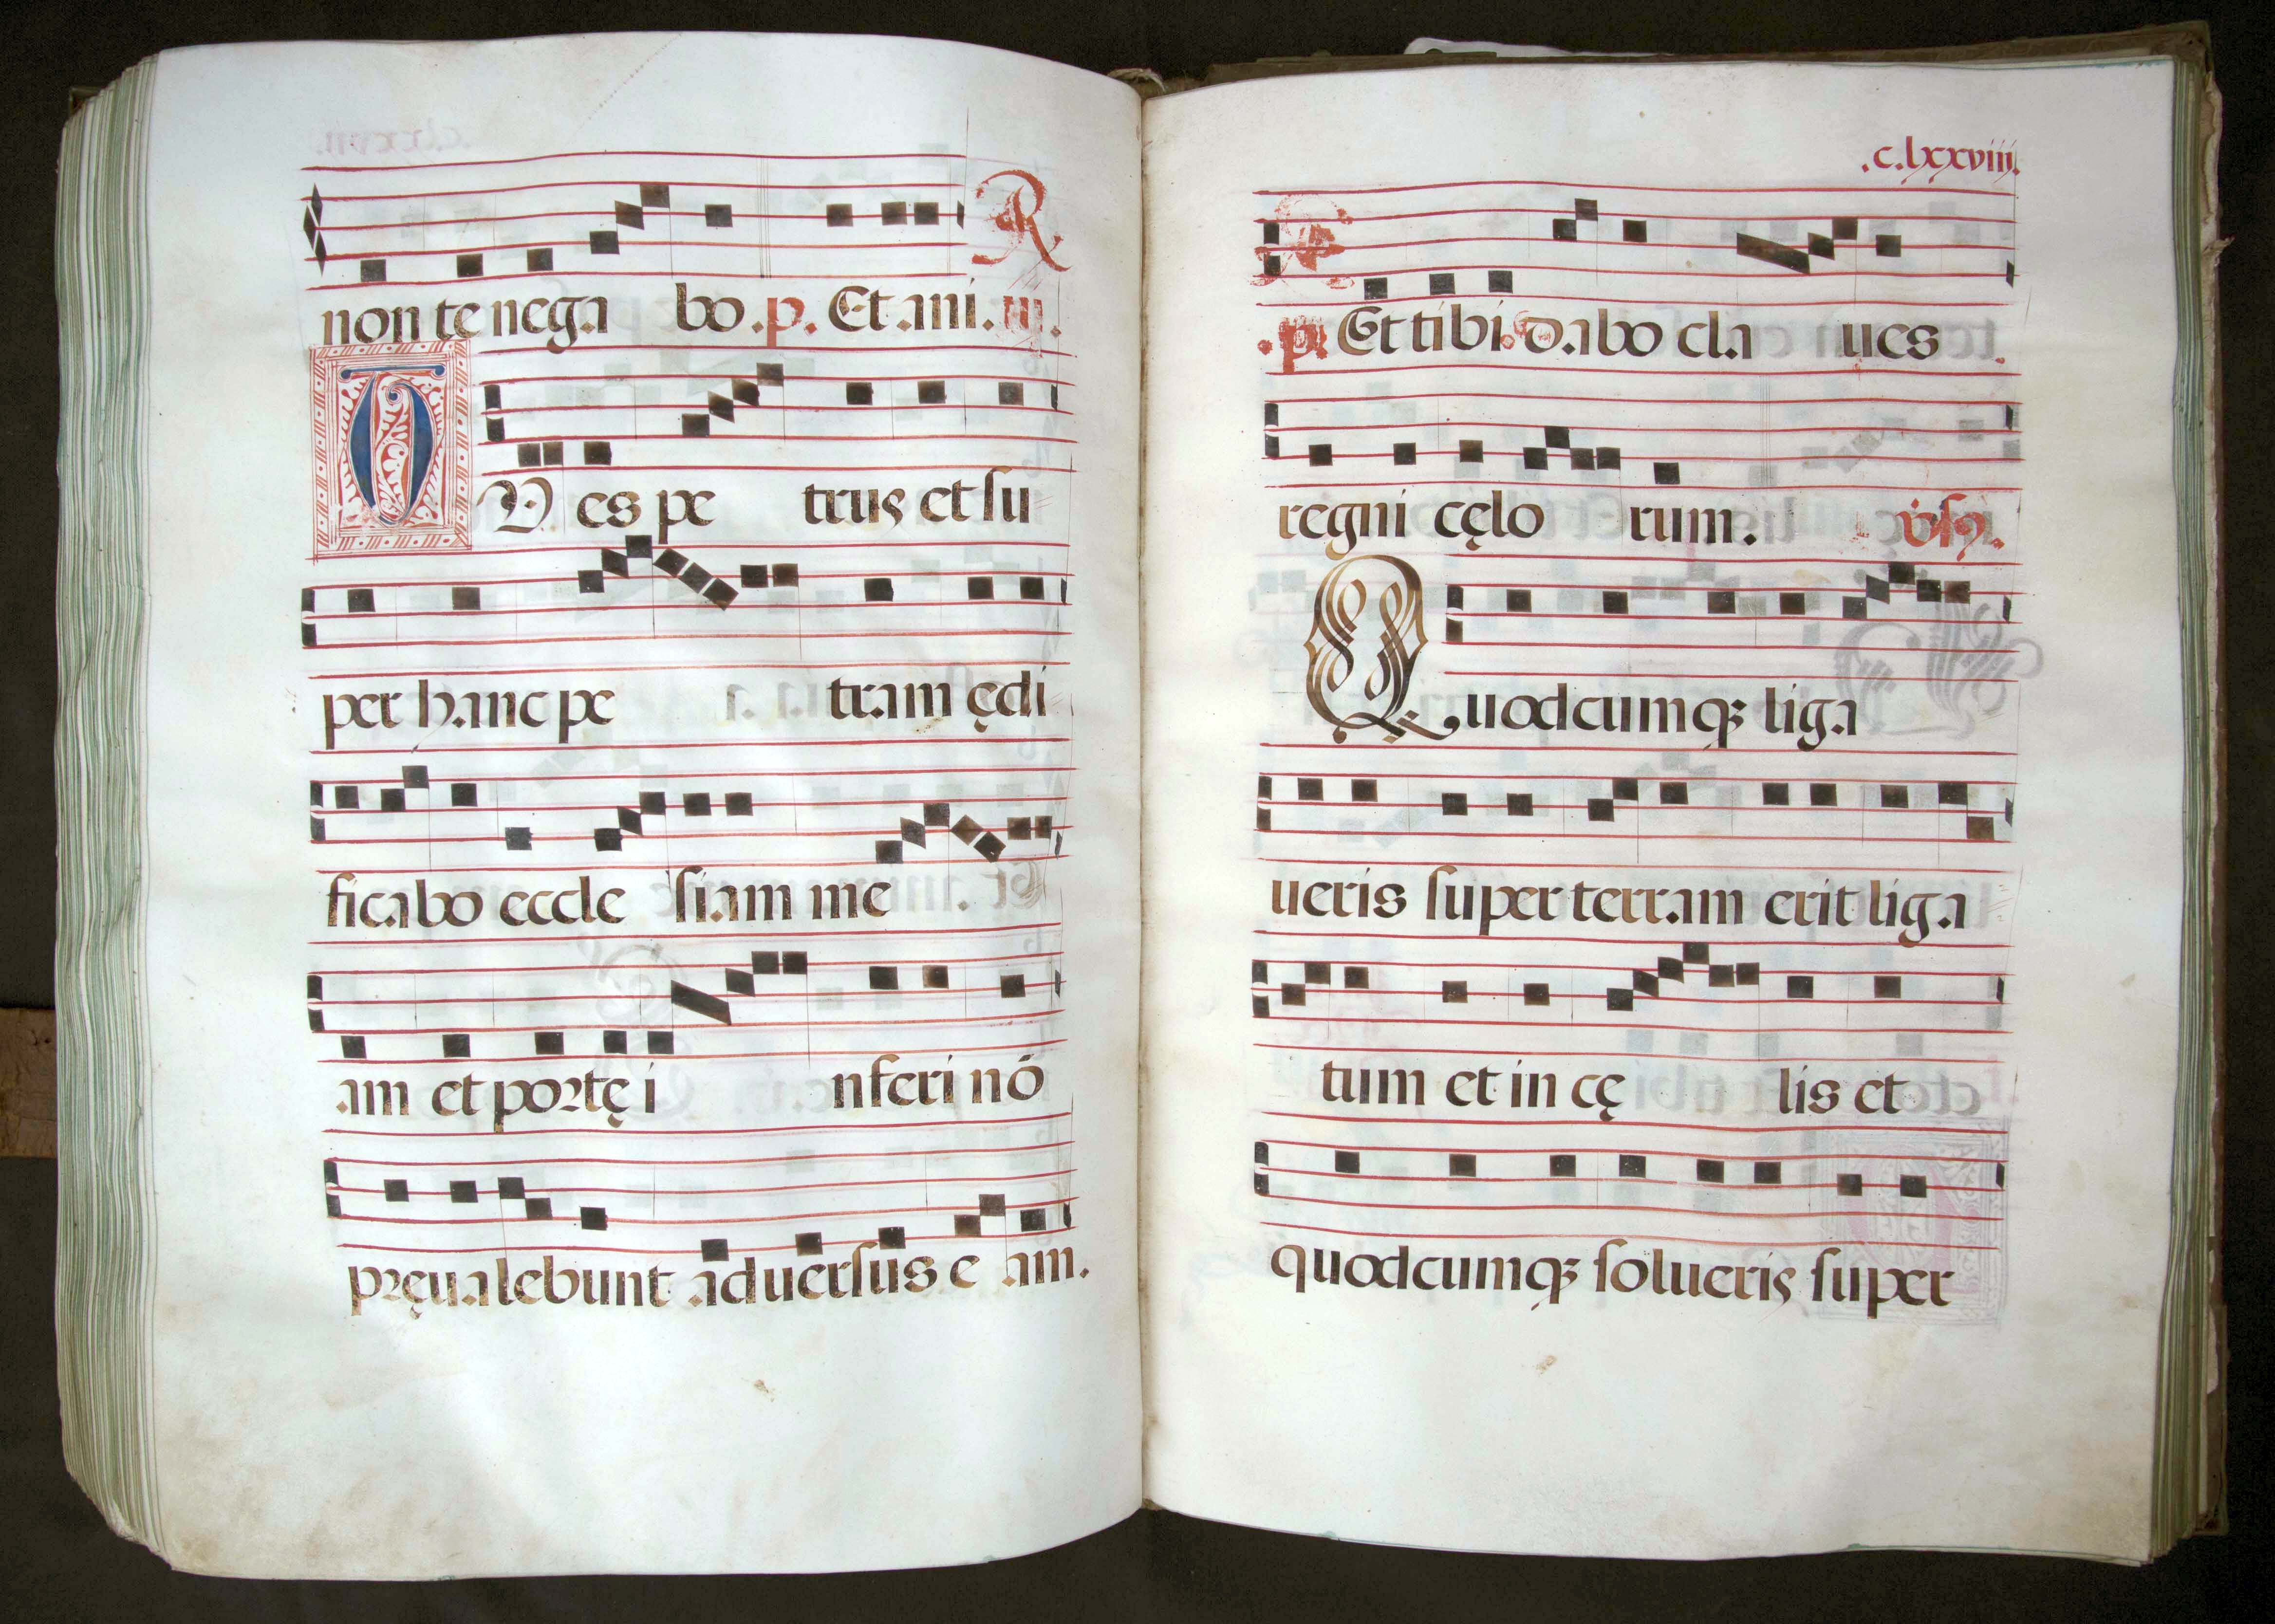 non te nega bo .p. Et ani. iii.
TV es pe trus et su
per hanc pe tram ędi
ficabo eccle siam me
am et portę i nferi nō
pręualebunt aduersus e am.
.c.lxxviii.
.p. Et tibi dabo cla ues
regni cęlo rum.
Quodcumq; liga
ueris super terram erit liga
tum et in cę lis et
quodcumq; solueris super